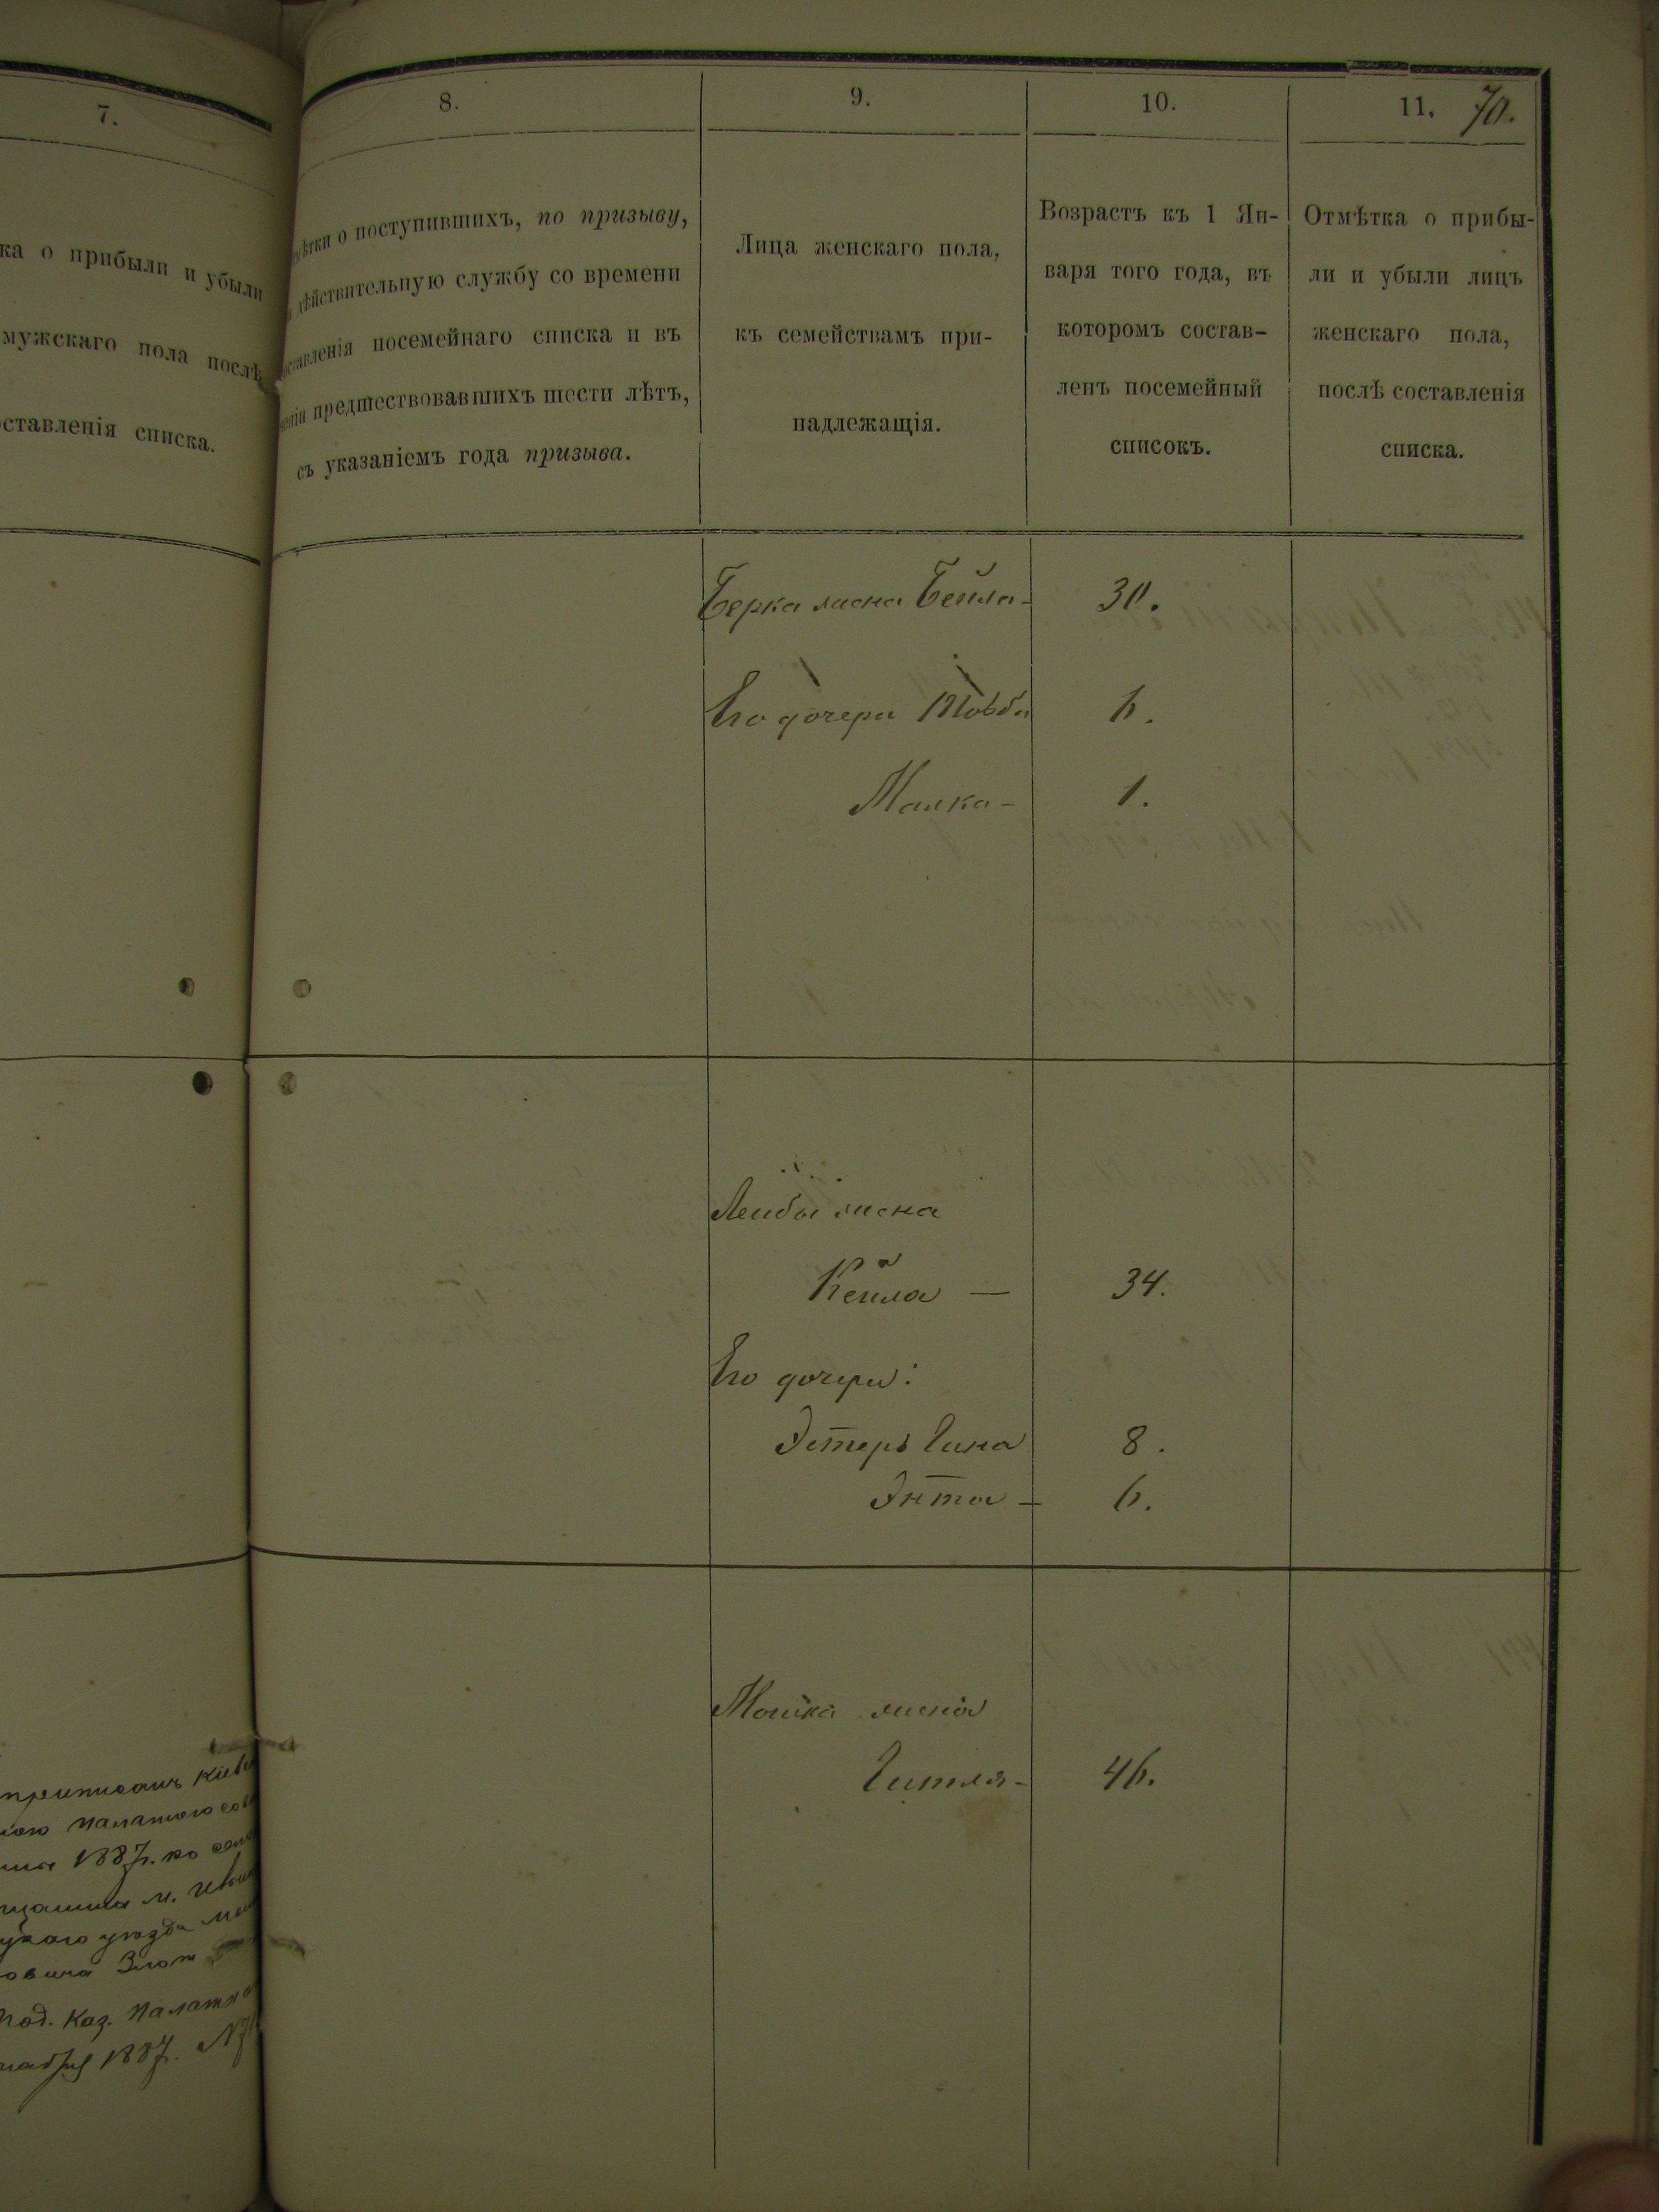 7.
ка о прибыли и убыли
мужскаго пола послѣ
ставленія списка.
8.
о поступившихъ, по призыву,
дѣйствительную службу со времени
составленія посемейнаго списка и въ
предшествовавшихъ шести лѣтъ,
съ указаніемъ года призыва.
9.
Лица женскаго пола,
къ семействамъ при-
надлежащія.
10.
Возрастъ къ 1 Ян-
варя того года, въ
которомъ состав-
ленъ посемейный
списокъ.
11. 70.
Отмѣтка о прибы-
ли и убыли лицъ
женскаго пола,
послѣ составленія
списка.
Берка жена Бейла - 30.
Его дочери 6.
Малка - 1.
Лейбы жена
Кейла — 34.
Его дочери:
Эстеръ Гина 8.
Энта - 6.
Мошка жена
Гитля - 46.
приписанъ Кіев
1887 г. по
м.
уѣзда
Злот
Под. Каз. Палаты
1887. №